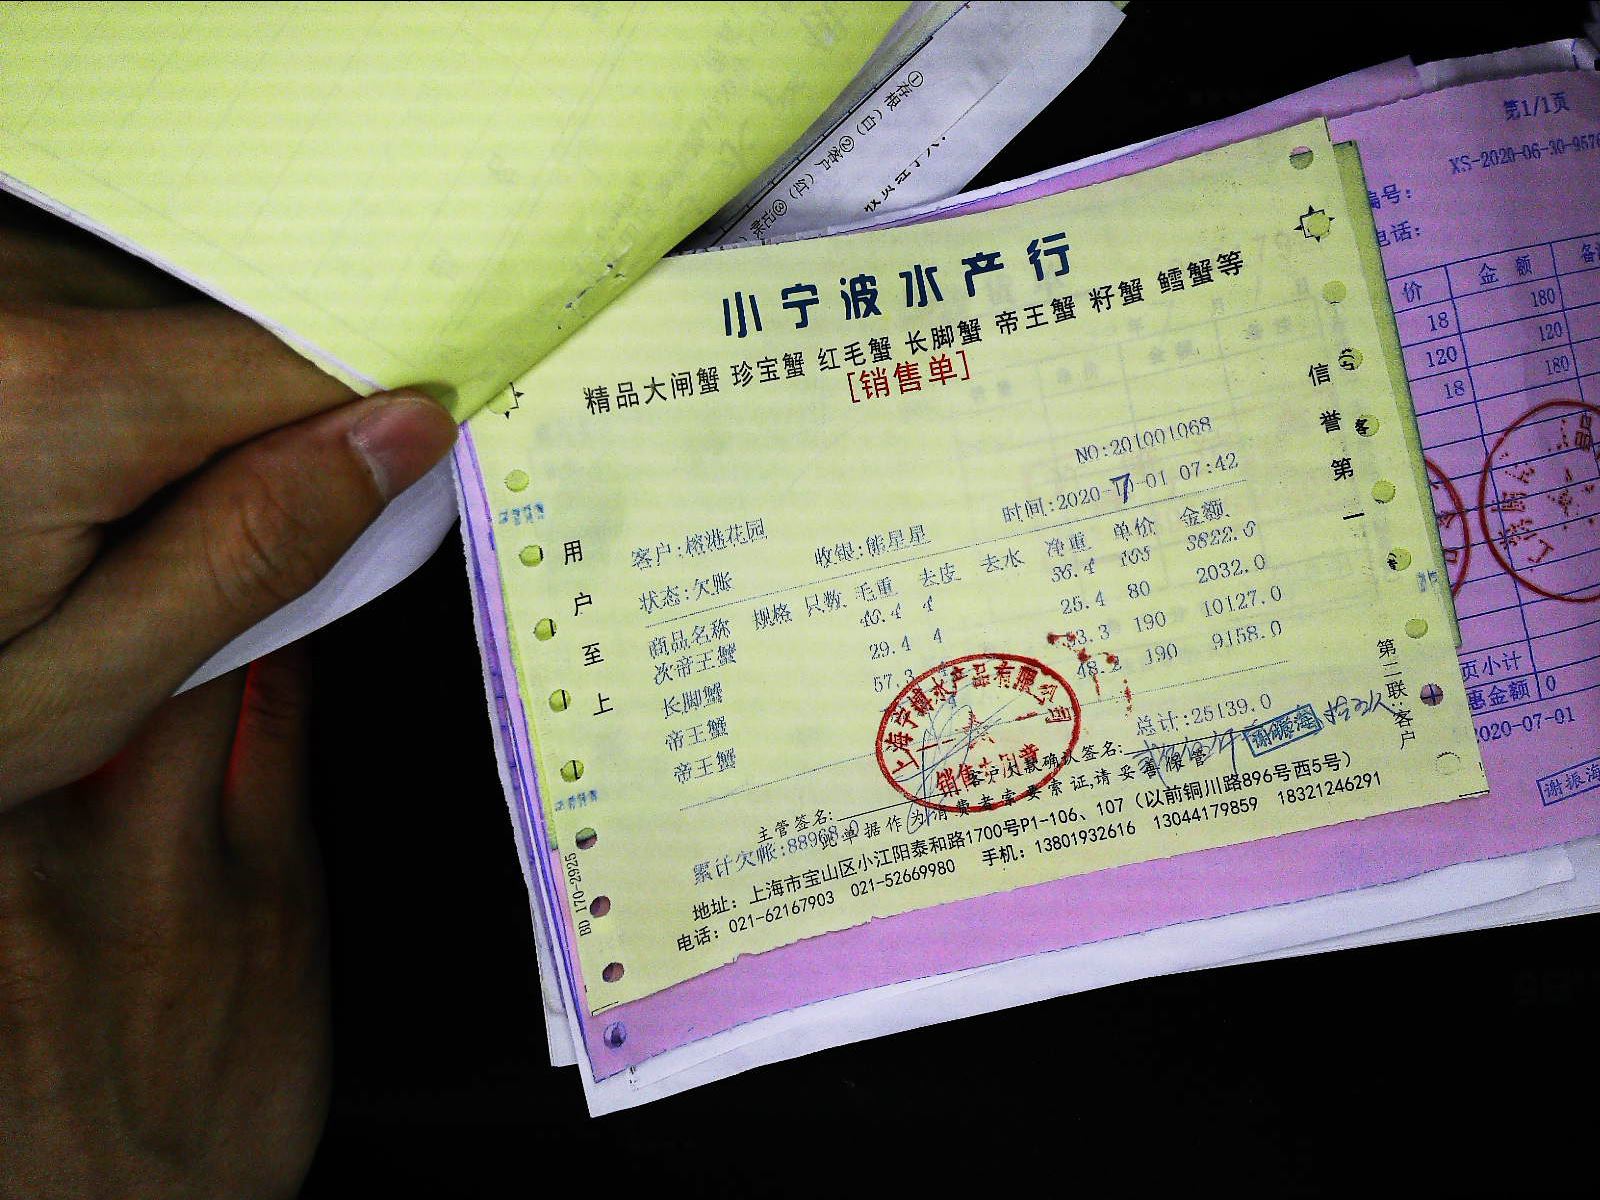 ①存根（白）②客户（红）③记账
第1/1页
XS-2020-06-30-957
编号：
电话：
价 金 额 备
18 180
120 120
18 180
页小计
惠金额 0
2020-07-01
谢振海
小宁波水产行
精品大闸蟹 珍宝蟹 红毛蟹 长脚蟹 帝王蟹 籽蟹 鳕蟹等
[销售单]
NO:201001068
时间:2020-7-01 07:42
客户:榕港花园 收银:熊星星
状态:欠账
商品名称 规格 只数 毛重 去皮 去水 净重 单价 金额
次帝王蟹 40.4 4 36.4 105 3822.0
长脚蟹 29.4 4 25.4 80 2032.0
帝王蟹 57.3 53.3 190 10127.0
帝王蟹 48.2 190 9158.0
总计:25139.0
主管签名: 客户大慧确认签名:
谢振海
累计欠帐:88968.0
此单据作为消费者索要索证,请妥善保管
地址：上海市宝山区小江阳泰和路1700号P1-106、107（以前铜川路896号西5号）
电话：021-62167903 021-52669980 手机：13801932616 13044179859 18321246291
用户至上
信誉第一
第二联:客户
BD 170-2925
上海宁博水产品有限公司
销售专用章